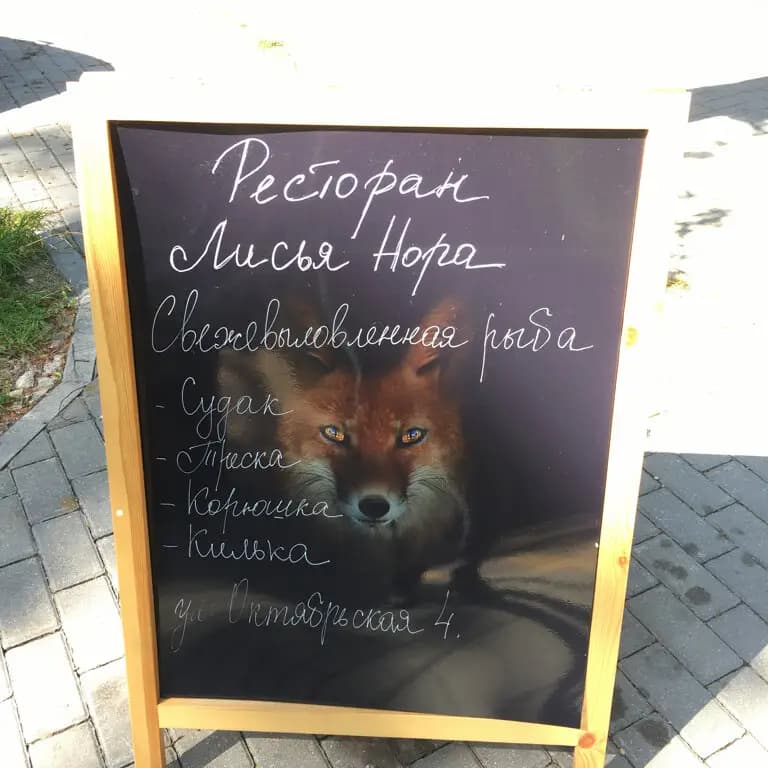 Ресторан
Лисья Нора
Свежевыловленная рыба
- Судак
- Треска
- Корюшка
- Килька
ул Октябрьская 4.